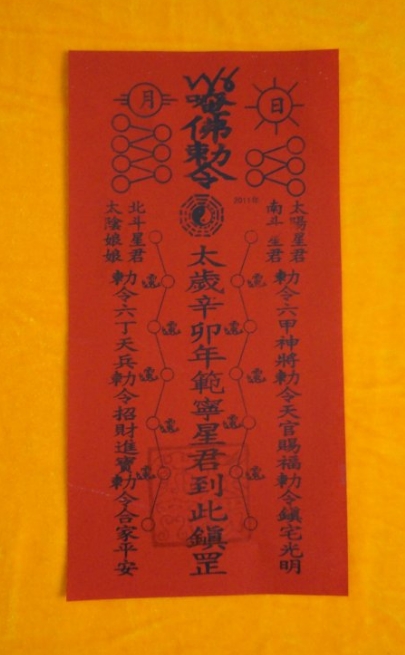 日
月
唵佛勅令
2011年
太陽星君
南斗星君
北斗星君
太陰娘娘
勅令六甲神將勅令天官賜福勅令鎮宅光明
太歲辛卯年範寧星君到此鎮罡
勅令六丁天兵勅令招財進寶勅令合家平安